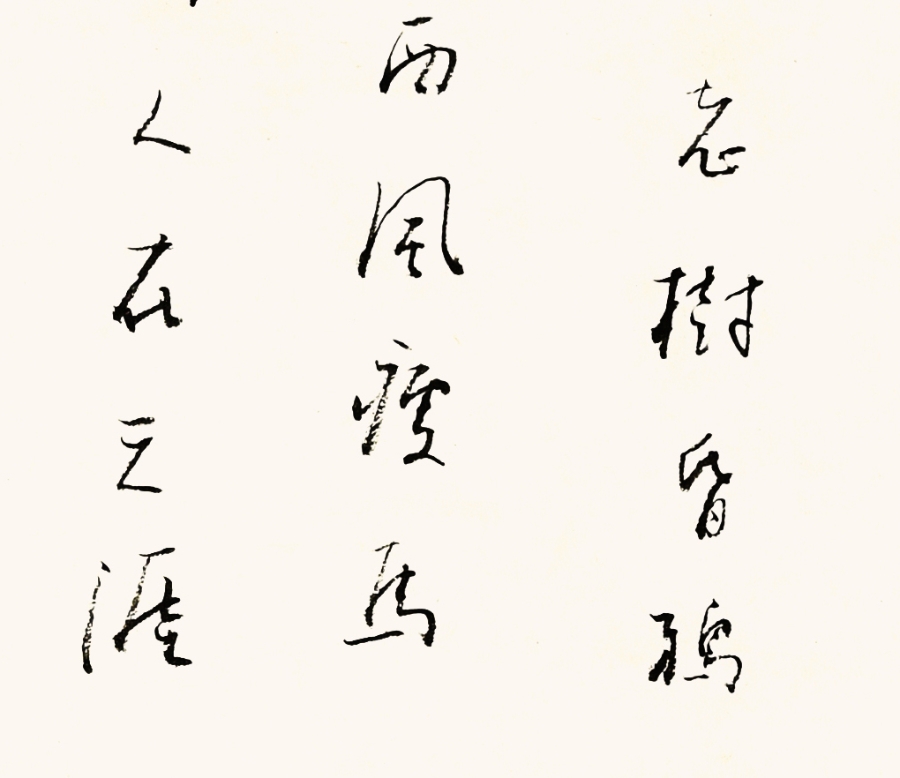 老樹昏鴉
西風瘦馬
人在天涯